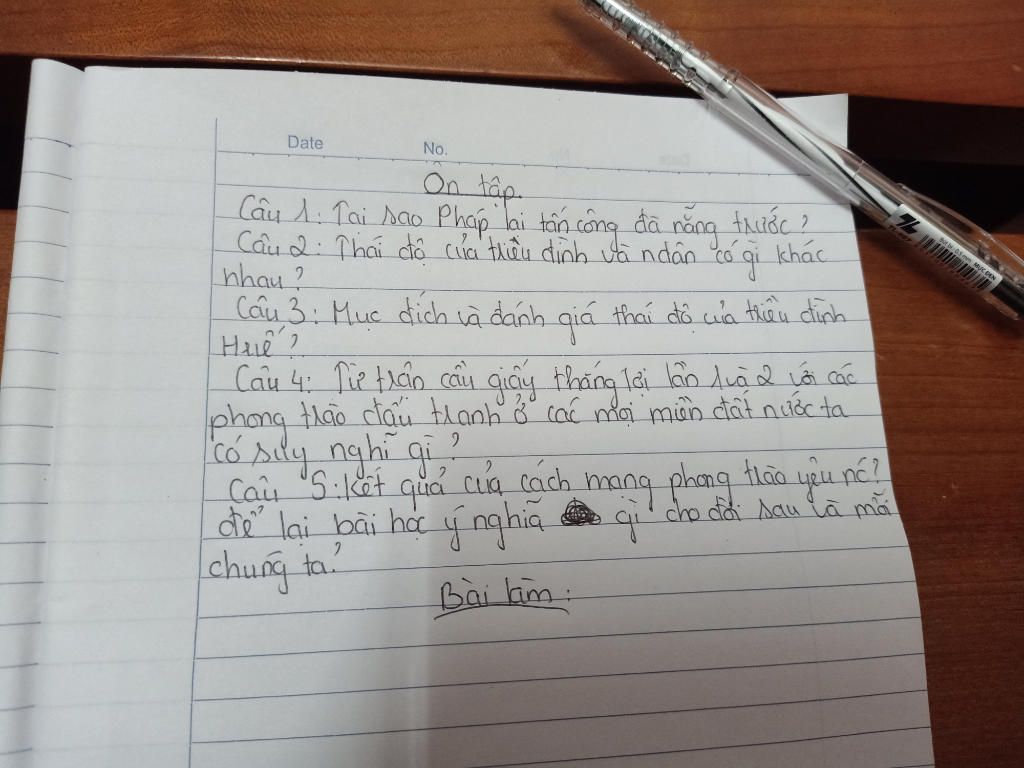 Date No.
Ôn tập.
Câu 1: Tại sao Pháp lại tấn công đà nẵng trước?
Câu 2: Thái độ của triều đình và ndân có gì khác
nhau?
Câu 3: Mục đích và đánh giá thái độ của triều đình
Huế?
Câu 4: Từ trận cầu giấy thắng lợi lần 1 và 2 với các
phong trào đấu tranh ở các mọi miền đất nước ta
có suy nghĩ gì?
Câu 5: Kết quả của cách mạng phong trào yêu nc?
để lại bài học ý nghĩa gì cho đời sau là mỗi
chúng ta?
Bài làm: